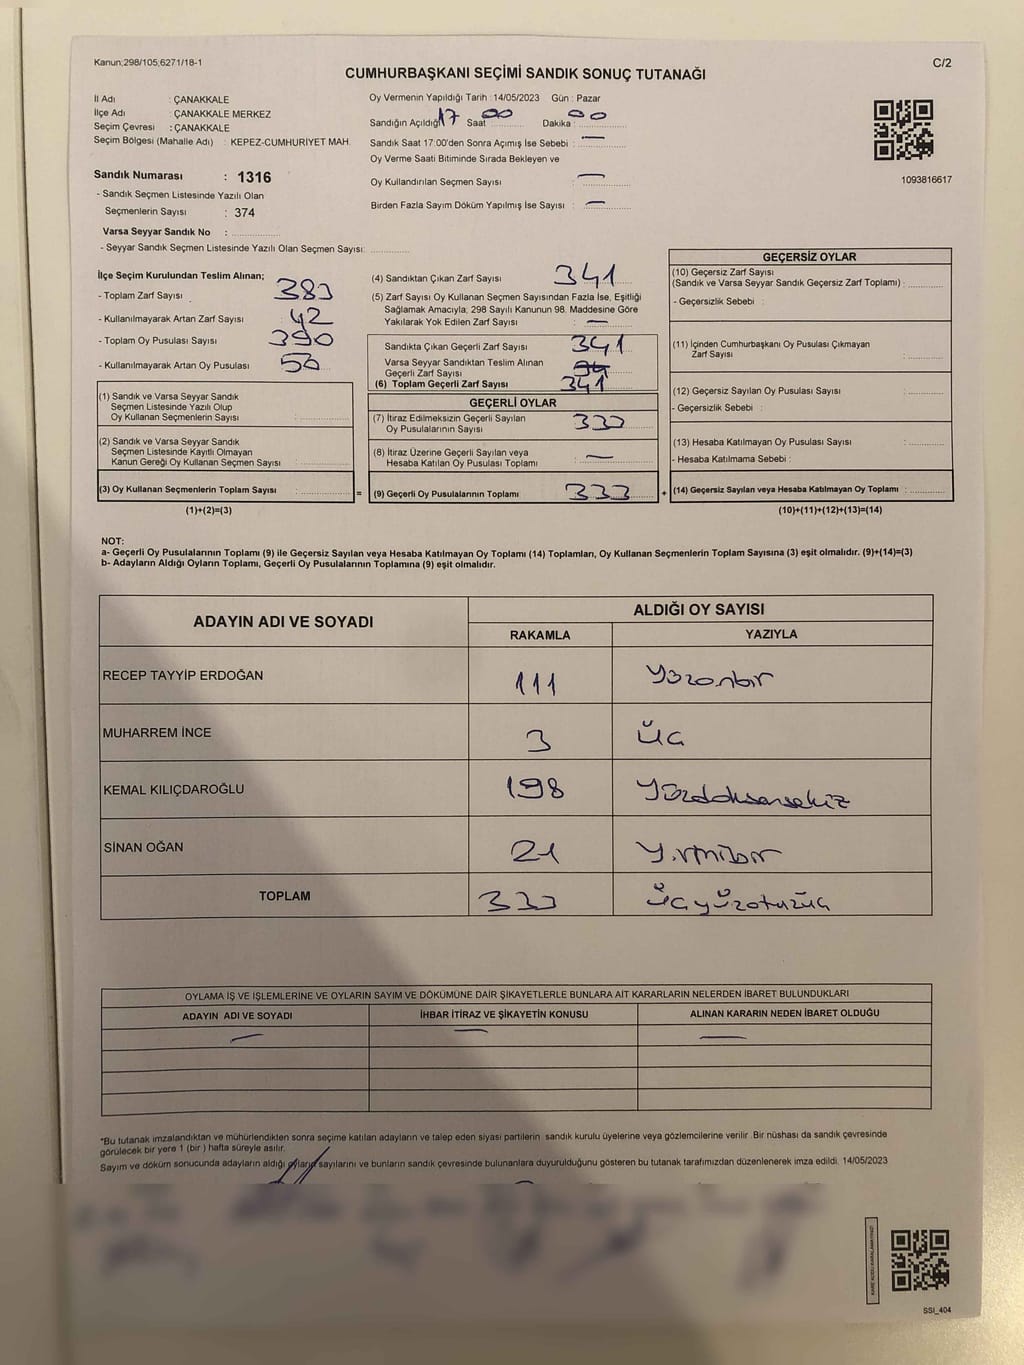 Kanun;298/105;6271/18-1
C/2
CUMHURBAŞKANI SEÇİMİ SANDIK SONUÇ TUTANAĞI
İl Adı : ÇANAKKALE
İlçe Adı : ÇANAKKALE MERKEZ
Seçim Çevresi : ÇANAKKALE
Seçim Bölgesi (Mahalle Adı) : KEPEZ-CUMHURİYET MAH.
Oy Vermenin Yapıldığı Tarih : 14/05/2023 Gün : Pazar
Sandığın Açıldığı 17 Saat 00 Dakika : 00
Sandık Saat 17:00'den Sonra Açımış İse Sebebi : —
Oy Verme Saati Bitiminde Sırada Bekleyen ve
Oy Kullandırılan Seçmen Sayısı : —
Birden Fazla Sayım Döküm Yapılmış İse Sayısı : —
1093816617
Sandık Numarası : 1316
- Sandık Seçmen Listesinde Yazılı Olan
Seçmenlerin Sayısı : 374
Varsa Seyyar Sandık No :
- Seyyar Sandık Seçmen Listesinde Yazılı Olan Seçmen Sayısı:
İlçe Seçim Kurulundan Teslim Alınan;
- Toplam Zarf Sayısı : 383
- Kullanılmayarak Artan Zarf Sayısı : 42
- Toplam Oy Pusulası Sayısı : 390
- Kullanılmayarak Artan Oy Pusulası : 50
(1) Sandık ve Varsa Seyyar Sandık
Seçmen Listesinde Yazılı Olup
Oy Kullanan Seçmenlerin Sayısı :
(2) Sandık ve Varsa Seyyar Sandık
Seçmen Listesinde Kayıtlı Olmayan
Kanun Gereği Oy Kullanan Seçmen Sayısı :
(3) Oy Kullanan Seçmenlerin Toplam Sayısı : =
(1)+(2)=(3)
(4) Sandıktan Çıkan Zarf Sayısı : 341
(5) Zarf Sayısı Oy Kullanan Seçmen Sayısından Fazla İse, Eşitliği
Sağlamak Amacıyla; 298 Sayılı Kanunun 98. Maddesine Göre
Yakılarak Yok Edilen Zarf Sayısı : —
Sandıkta Çıkan Geçerli Zarf Sayısı : 341
Varsa Seyyar Sandıktan Teslim Alınan
Geçerli Zarf Sayısı :
(6) Toplam Geçerli Zarf Sayısı 341
GEÇERLİ OYLAR
(7) İtiraz Edilmeksizin Geçerli Sayılan
Oy Pusulalarının Sayısı : 333
(8) İtiraz Üzerine Geçerli Sayılan veya
Hesaba Katılan Oy Pusulası Toplamı : —
(9) Geçerli Oy Pusulalarının Toplamı : 333 +
GEÇERSİZ OYLAR
(10) Geçersiz Zarf Sayısı
(Sandık ve Varsa Seyyar Sandık Geçersiz Zarf Toplamı) :
- Geçersizlik Sebebi :
(11) İçinden Cumhurbaşkanı Oy Pusulası Çıkmayan
Zarf Sayısı :
(12) Geçersiz Sayılan Oy Pusulası Sayısı :
- Geçersizlik Sebebi :
(13) Hesaba Katılmayan Oy Pusulası Sayısı :
- Hesaba Katılmama Sebebi :
(14) Geçersiz Sayılan veya Hesaba Katılmayan Oy Toplamı :
(10)+(11)+(12)+(13)=(14)
NOT:
a- Geçerli Oy Pusulalarının Toplamı (9) ile Geçersiz Sayılan veya Hesaba Katılmayan Oy Toplamı (14) Toplamları, Oy Kullanan Seçmenlerin Toplam Sayısına (3) eşit olmalıdır. (9)+(14)=(3)
b- Adayların Aldığı Oyların Toplamı, Geçerli Oy Pusulalarının Toplamına (9) eşit olmalıdır.
ADAYIN ADI VE SOYADI ALDIĞI OY SAYISI
RAKAMLA YAZIYLA
RECEP TAYYİP ERDOĞAN 111 Yüzonbir
MUHARREM İNCE 3 üç
KEMAL KILIÇDAROĞLU 198 Yüzdoksansekiz
SİNAN OĞAN 21 Yirmibir
TOPLAM 333 üçyüzotuzüç
OYLAMA İŞ VE İŞLEMLERİNE VE OYLARIN SAYIM VE DÖKÜMÜNE DAİR ŞİKAYETLERLE BUNLARA AİT KARARLARIN NELERDEN İBARET BULUNDUKLARI
ADAYIN ADI VE SOYADI İHBAR İTİRAZ VE ŞİKAYETİN KONUSU ALINAN KARARIN NEDEN İBARET OLDUĞU
— — —
*Bu tutanak imzalandıktan ve mühürlendikten sonra seçime katılan adayların ve talep eden siyasi partilerin sandık kurulu üyelerine veya gözlemcilerine verilir. Bir nüshası da sandık çevresinde
görülecek bir yere 1 (bir) hafta süreyle asılır.
Sayım ve döküm sonucunda adayların aldığı oyların sayılarını ve bunların sandık çevresinde bulunanlara duyurulduğunu gösteren bu tutanak tarafımızdan düzenlenerek imza edildi. 14/05/2023
SSI_404